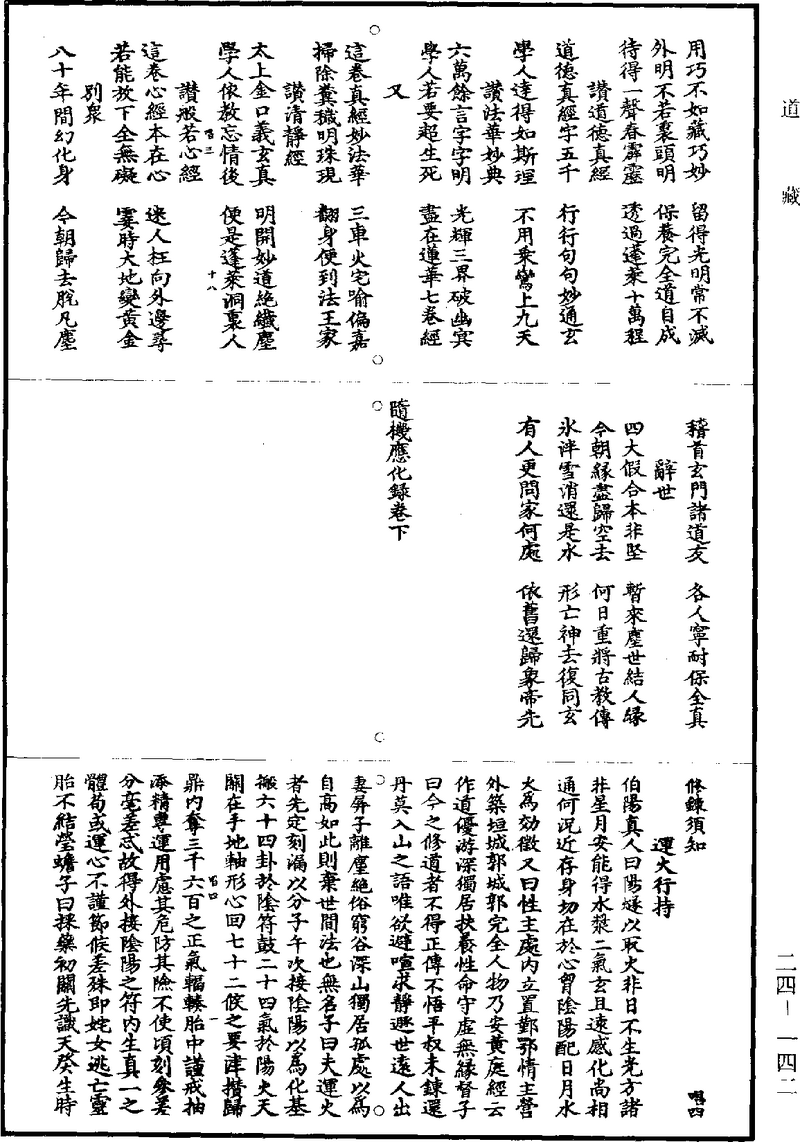 道藏
用巧不如藏巧妙　留得光明常不滅
外明不若裏頭明　保養完全道自成
待得一聲春霹靂　透過蓬萊十萬程
讚道德真經
道德真經字五千　行行句句妙通玄
學人達得如斯理　不用乘鸞上九天
讚法華妙典
六萬餘言字字明　光輝三界破幽冥
學人若要超生死　盡在蓮華七卷經
又
這卷真經妙法華　三車火宅喻偏嘉
掃除糞穢明珠現　翻身便到法王家
讚清靜經
太上金口義玄真　明開妙道絕纖塵
學人依教忘情後　便是蓬萊洞裏人
唱三　十八
讚般若心經
這卷心經本在心　迷人枉向外邊尋
若能放下全無礙　霎時大地變黃金
別衆
八十年間幻化身　今朝歸去脫凡塵
稽首玄門諸道友　各人寧耐保全真
辭世
四大假合本非堅　暫來塵世結人緣
今朝緣盡歸空去　何日重將古教傳
氷泮雪消還是水　形亡神去復同玄
有人更問家何處　依舊還歸象帝先
隨機應化録卷下
修鍊須知　唱四
運火行持
伯陽真人曰陽燧以取火非日不生光方諸
非星月安能得水漿二氣玄且遠感化尚相
通何況近存身切在於心胷陰陽配日月水
火爲効徵又曰性主處内立置鄞鄂情主營
外築垣城郭城郭完全人物乃安黃庭經云
作道優游深獨居扶養性命守虛無緣督子
曰今之修道者不得正傳不悟平叔未鍊還
丹莫入山之語唯欲避喧求靜遯世遠人出
妻屏子離塵絕俗窮谷深山獨居孤處以爲
自高如此則棄世間法也無名子曰夫運火
者先定刻漏以分子午次接陰陽以爲化基
搬六十四卦於陰符鼓二十四氣於陽火天
關在手地軸形心回七十二候之要津攢歸
唱四　一
鼎内奪三千六百之正氣輻輳胎中謹戒抽
添精專運用慮其危防其險不使頃刻參差
分毫差忒故得外接陰陽之符内生真一之
體苟或運心不謹節候差殊即姹女逃亡靈
胎不結瑩蟾子曰採藥初關先識天癸生時
二四－一四二